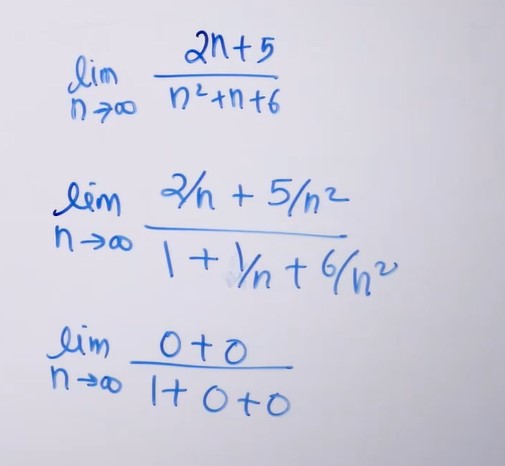 lim n→∞ 2n+5 / n²+n+6
lim n→∞ 2/n + 5/n² / 1 + 1/n + 6/n²
lim n→∞ 0+0 / 1+0+0